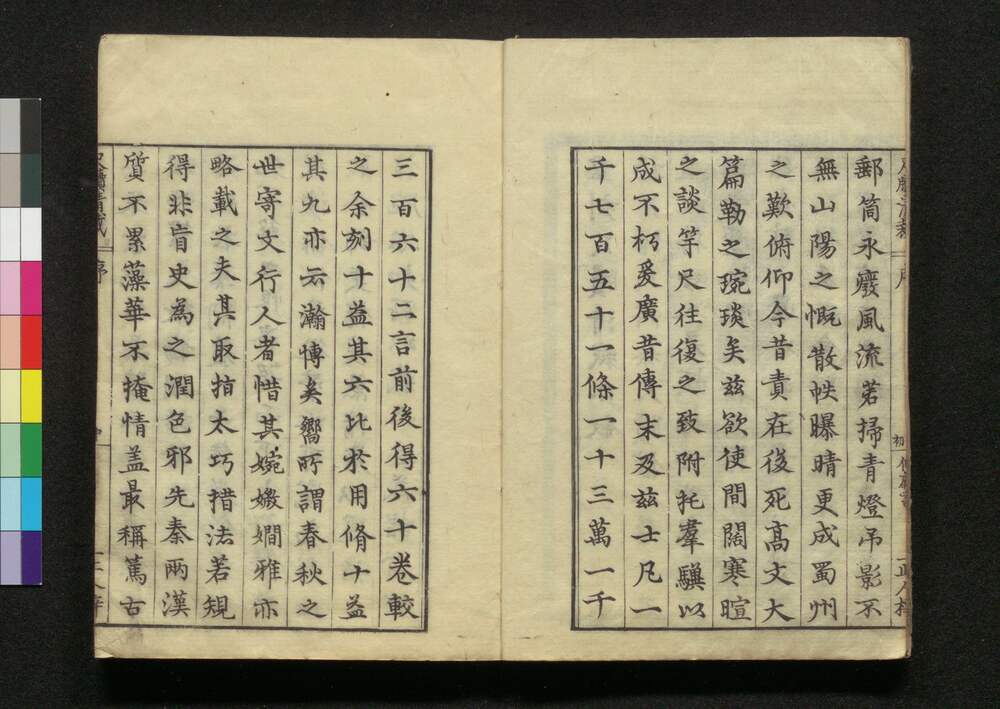 郵筒永廢風流若掃青燈吊影不
無山陽之慨散帙曝晴更成蜀州
之歎俯仰今昔責在後死高文大
篇勒之琬琰矣兹欲使間闊寒暄
之談竿尺往復之致附托羣驥以
成不朽爰廣昔傳末及兹士凡一
千七百五十一條一十三萬一千
三百六十二言前後得六十卷較
之余刻十益其六比於用脩十益
其九亦云瀚愽矣嚮所謂春秋之
世寄文行人者惜其婉嫩嫺雅亦
略載之夫其取掯太巧措法若規
得非盲史為之潤色邪先秦兩漢
質不累藻華不掩情盖最稱篤古
序